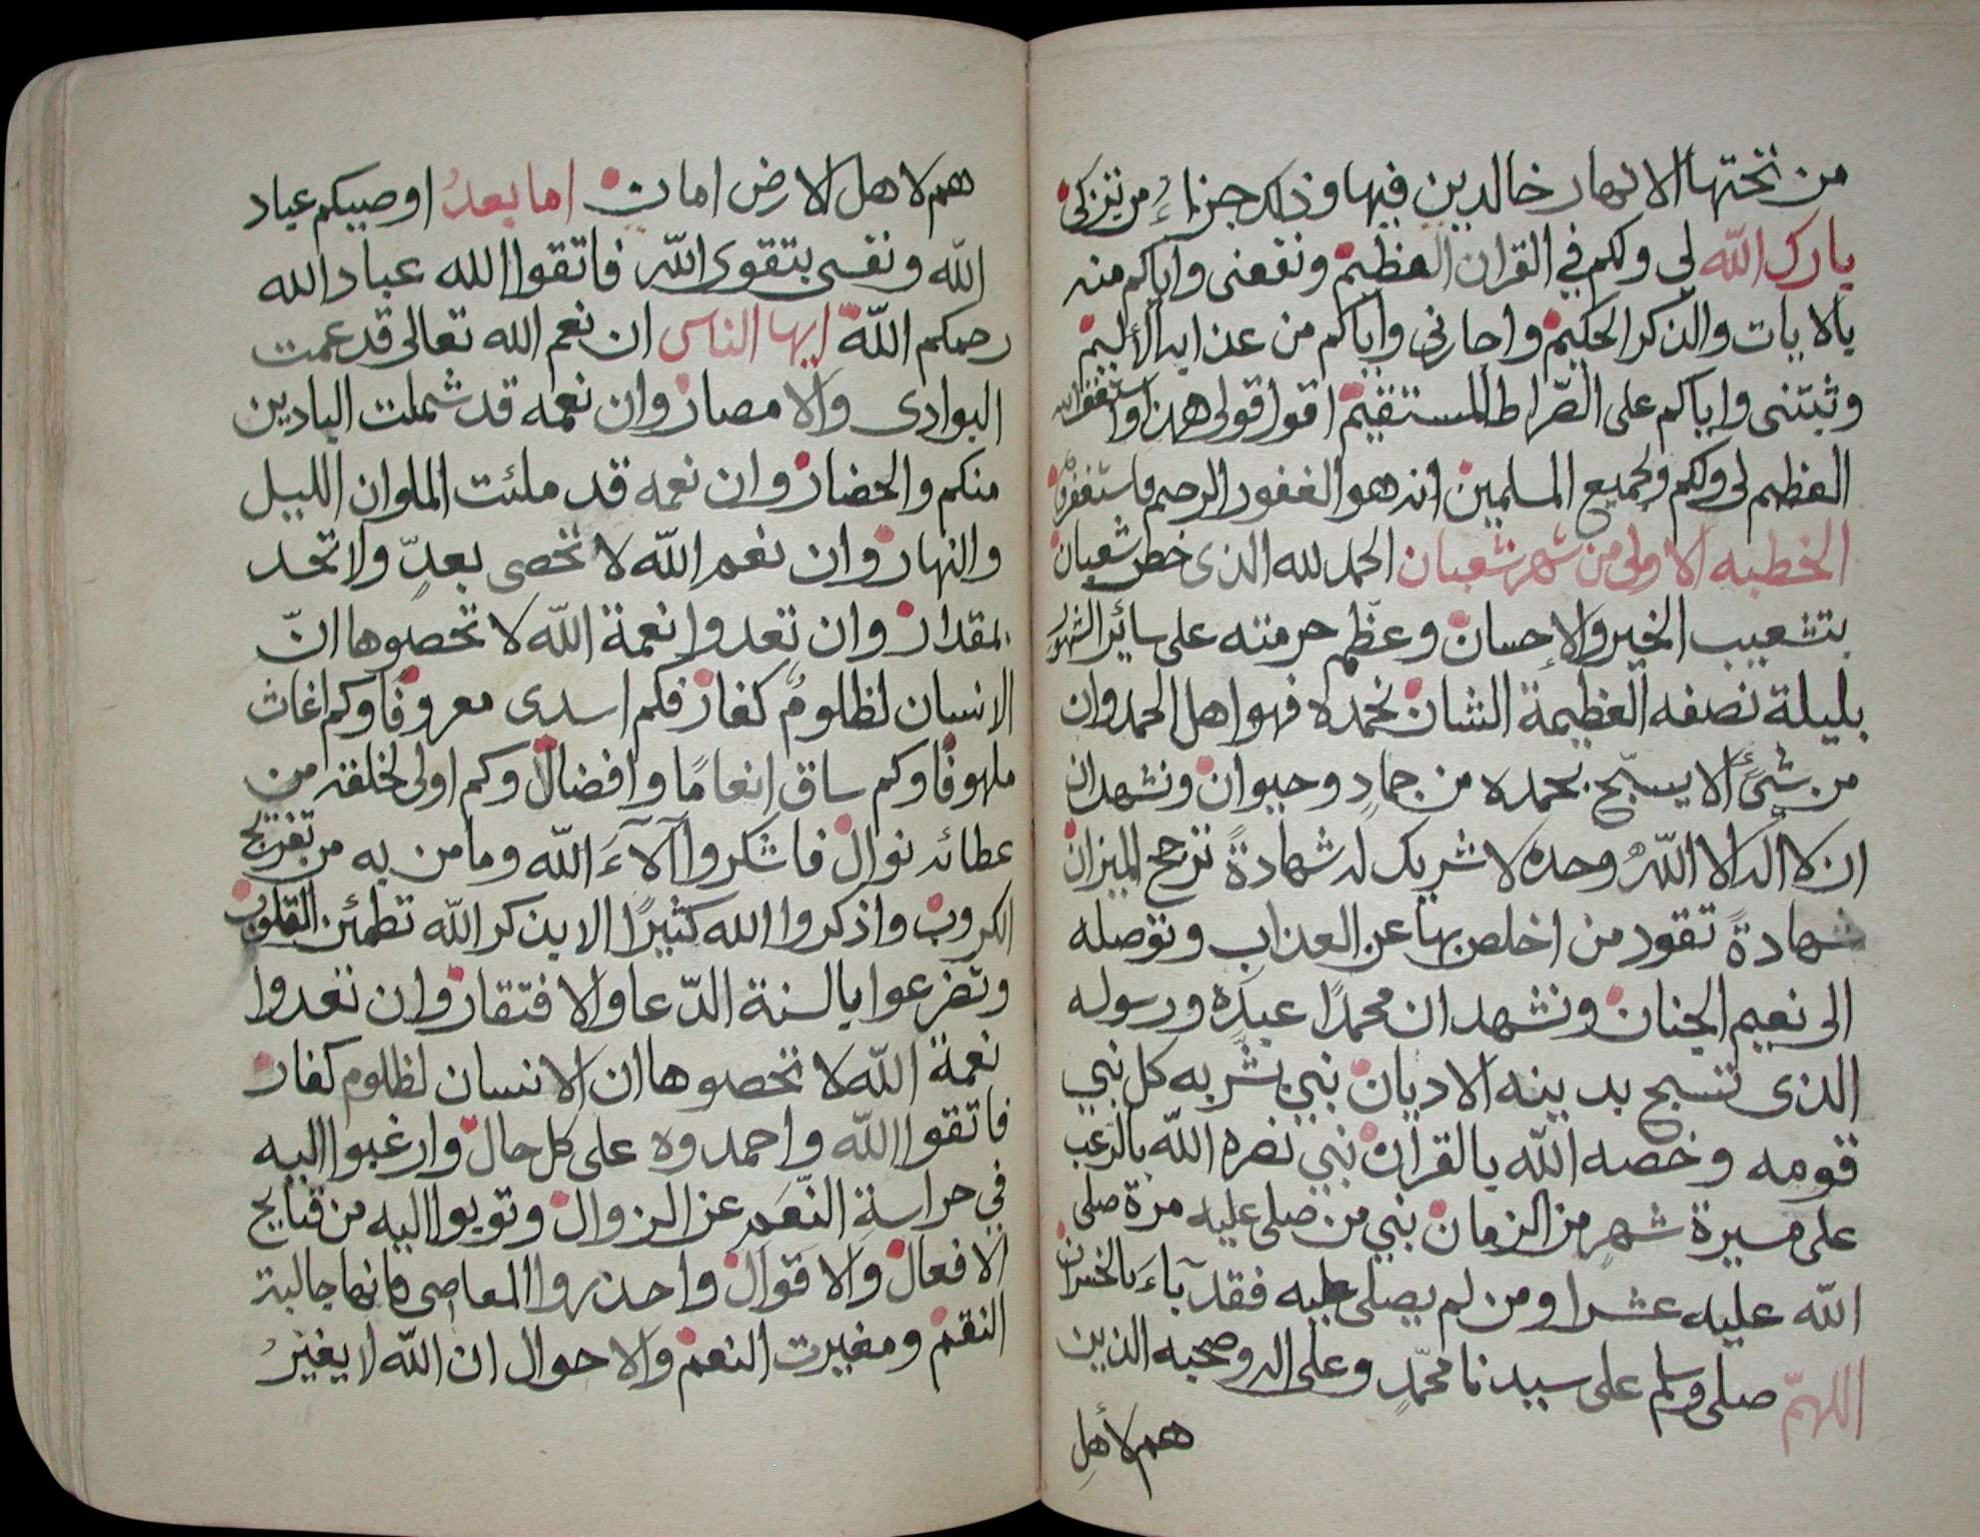 من تحتها الانهار خالدين فيها وذلك جزاءُ من تزكى
بارك الله لي ولكم في القران العظيم ونفعنى واياكم منه
بالايات والذكر الحكيم واجارنى واياكم من عذابه الأليم
وثبتنى واياكم على الصّراط المستقيم اقوا قولى هذا واستغفر الله
العظيم لى ولكم ولجميع المسلمين انه هو الغفور الرحيم فاستغفروه
الخطبه الاولى من شهر شعبان الحمد لله الذى خطر شعبان
بتشعيب الخير والإحسان وعظّم حرمته على سائر الشهور
بليلة نصفه العظيمة الشان نحمده فهو اهل الحمد وان
من شئٍ الا يسبّح بحمده من جمادٍ وحيوان ونشهد ان
ان لا اله الا اللهُ وحده لا شريك له شهادةً ترجح الميزان
شهادةً تقود من اخلص بها عن العذاب وتوصله
الى نعيم الجنان ونشهد ان محمدًا عبدَه ورسوله
الذى تنسبح بدينه الاديان نبي بشّر به كل نبي
قومه وخصه الله بالقران نبي نصره الله بالرعب
على مسيرة شهرٍ من الزمان نبي من صلى عليه مرة صلى
الله عليه عشرا ومن لم يصلى عليه فقد بآءَ بالخسران
اللهمّ صلى وسلم على سيدنا محمّدٍ وعلى اله وصحبه الذين
هم لأهل
هم لاهل الارض امان اما بعدُ اوصيكم عباد
الله ونفسى بتقوى الله فاتقوا الله عباد الله
رحمكم اللّه ايها الناس ان نعم الله تعالى قد عمت
البوادى والامصار وان نعمه قد شملت البادين
منكم والحضار وان نعمه قد ملئت الملوان الليل
والنهار وان نعم اللّه لا تحصى بعدٍّ ولا تحد
بمقدار وان تعدوا نعمة اللّه لا تحصوها انّ
الانسان لظلومٌ كفار فكم اسدى معروفًا وكم اغاث
ملهوفًا وكم ساق انعامًا وافضال وكم اولى لخلقه من
عطائه نوال فاشكروا آلآءَ اللّه وما من به من تفريج
الكروب واذكروا الله كثيرًا الا بذكر اللّه تطمئن القلوب
وتضرعوا بالسنة الدّعا والافتقار وان تعدوا
نعمة اللّه لا تحصوها ان الانسان لظلوم كفار
فاتقوا اللّه واحمدوه على كل حال وارغبوا اليه
في حراسةِ النّعَمِ عن الزوال وتوبوا اليه من قبايح
الافعال والاقوال واحذروا المعاصى فانها جالبة
النقم ومغيرت النعم والاحوال ان اللّه لا يغيرُ